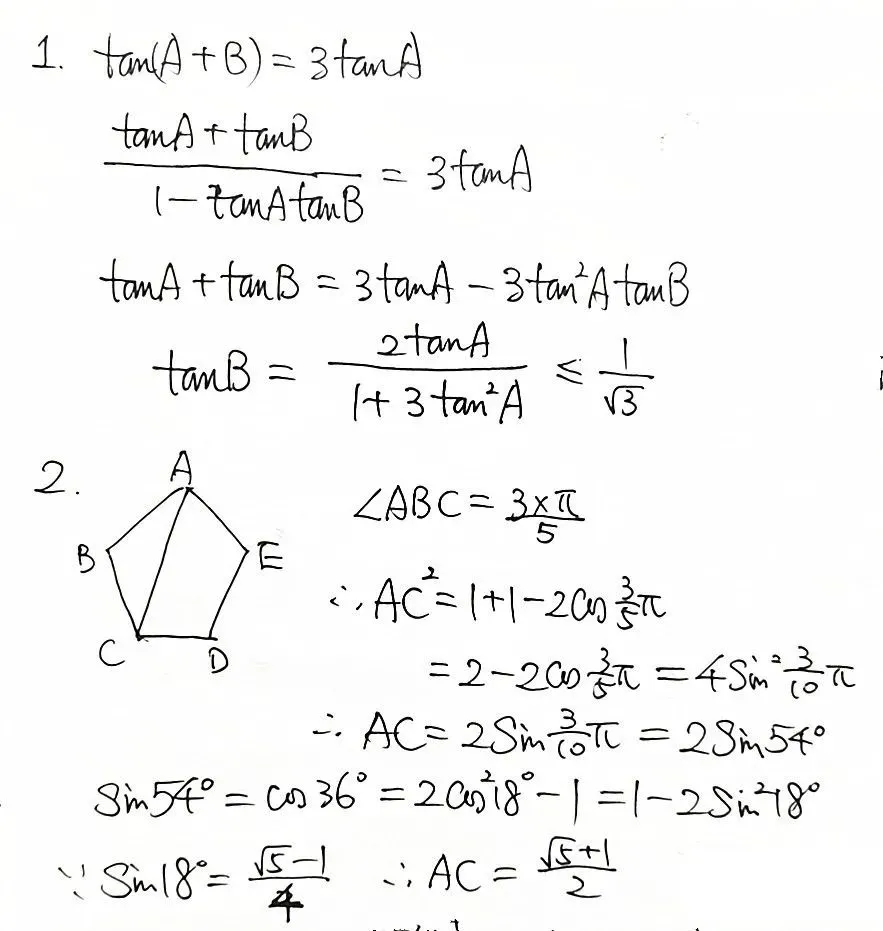 1. tan(A+B) = 3tanA
(tanA + tanB)/(1 - tanA tanB) = 3tanA
tanA + tanB = 3tanA - 3tan²A tanB
tanB = 2tanA/(1 + 3tan²A) ≤ 1/√3
2.
A
B
E
C
D
∠ABC = 3×π/5
∴ AC² = 1+1-2cos 3/5 π
= 2-2cos 3/5 π = 4sin² 3/10 π
∴ AC = 2sin 3/10 π = 2sin54°
sin54° = cos36° = 2cos²18° - 1 = 1-2sin²18°
∵ sin18° = (√5-1)/4 ∴ AC = (√5+1)/2